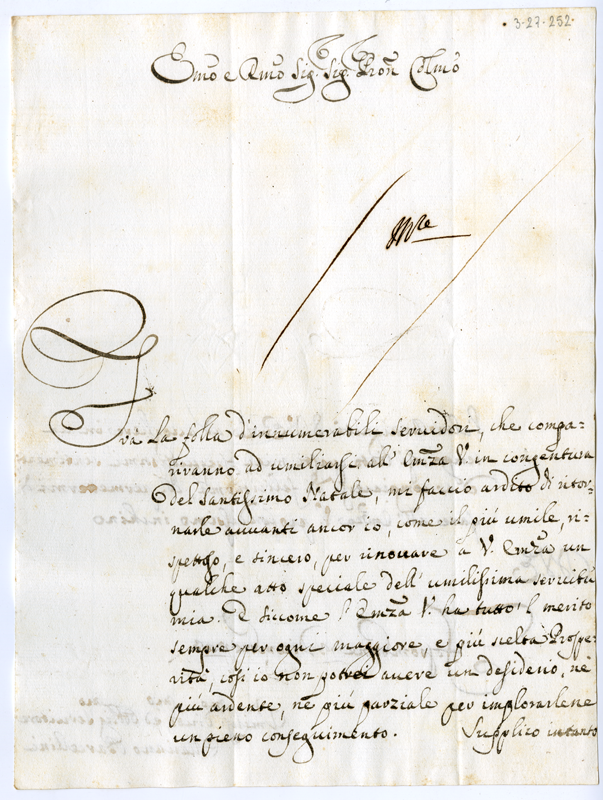 3-27-252
Emo e Rmo Sig. Sig. Pron Colmo
Tra la folla d'innumerabili servidori, che compa-
riranno ad umiliarsi all' Emza V. in congentura
del Santissimo Natale, mi faccio ardito di ritor-
narle avvanti ancor io, come il più umile, ri-
spettoso, e sincero, per rinovare a V. Emza un
qualche atto speciale dell' umilissima servitù
mia. E siccome l' Emza V. ha tutto 'l merito
sempre per ogni maggiore e più scelta Prospe-
rità, così io non potrei avere un desiderio, nè
più ardente, nè più parziale per implorarlene
un pieno conseguimento. Supplico intanto